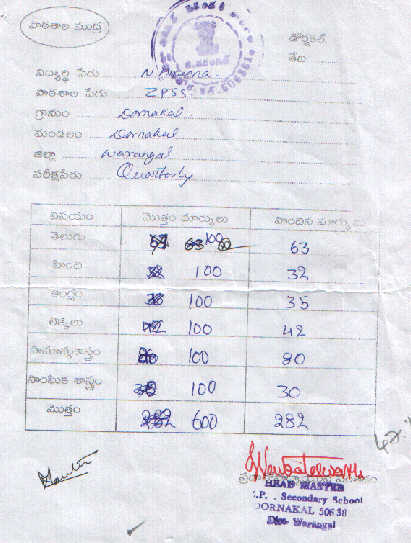 పాఠశాల ముద్ర
డోర్నకల్
తేది
విద్యార్థి పేరు N. Praveena
పాఠశాల పేరు ZPSS
గ్రామం Dornakal
మండలం Dornakal
జిల్లా Warangal
పరీక్షపేరు Quarterly
విషయం మొత్తం మార్కులు పొందిన మార్కులు
తెలుగు 100 63
హింది 100 32
ఆంగ్లం 100 35
లెక్కలు 100 42
సామాన్యశాస్త్రం 100 80
సాంఘిక శాస్త్రం 100 30
మొత్తం 600 282
HEAD MASTER
Z.P. . Secondary School
DORNAKAL 506 38
Dist Warangal